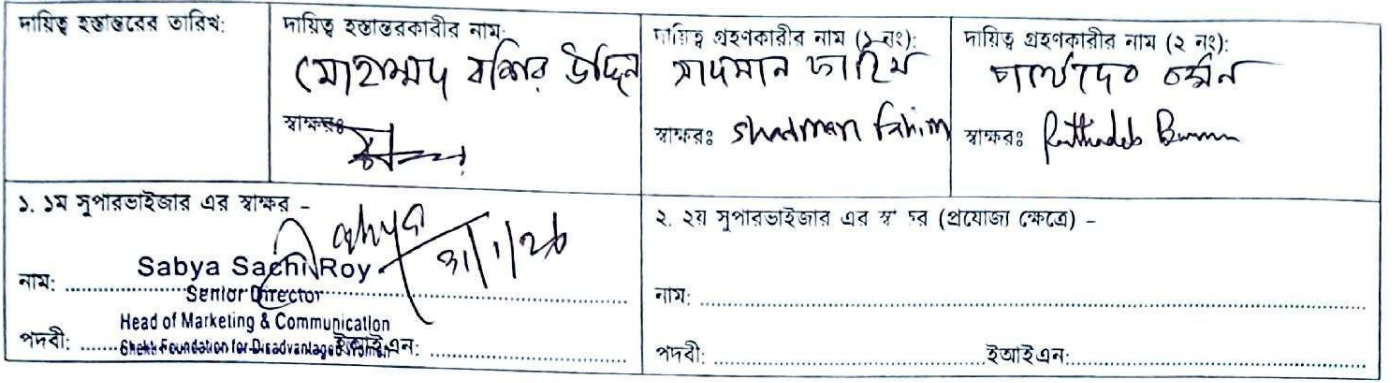 দায়িত্ব হস্তান্তরের তারিখ:
দায়িত্ব হস্তান্তরকারীর নাম:
মোহাম্মদ বশির উদ্দিন
স্বাক্ষরঃ
দায়িত্ব গ্রহণকারীর নাম (১ নং):
সাদমান ফাহিম
স্বাক্ষরঃ Shadman Fahim
দায়িত্ব গ্রহণকারীর নাম (২ নং):
পার্থদেব বর্মন
স্বাক্ষরঃ
১. ১ম সুপারভাইজার এর স্বাক্ষর –
Sabya Sachi Roy
নাম:
Senior Director
Head of Marketing & Communication
পদবী: Foundation for Disadvantaged Women ইআইএন:
২. ২য় সুপারভাইজার এর স্বাক্ষর (প্রযোজ্য ক্ষেত্রে) –
নাম:
পদবী: ইআইএন: